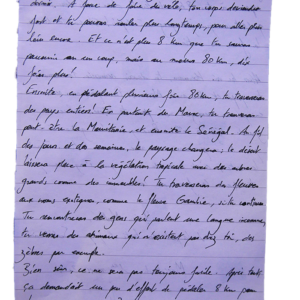 devenir. A force de faire du vélo, ton corps deviendra
fort et tu pourras rouler plus longtemps, pour aller plus
loin encore. Et ce n'est plus 8 km que tu pourras
parcourir en un coup, mais au moins 80 km,
très plus!
Ensuite, en pédalant plusieurs fois 80 km, tu traverseras
des pays entiers! En partant du Maroc, tu traverseras
peut-être la Mauritanie et ensuite le Sénégal. Au fil
des jours et des semaines, le paysage changera, le désert
laissera place à la végétation tropicale avec des arbres
grands comme des immeubles! Tu traverseras des fleuves
aux noms exotiques, comme le fleuve Gambie, si tu continues.
Tu rencontreras des gens qui parlent une langue inconnue,
tu verras des animaux qui n'existent pas chez toi, des
zèbres par exemple.
Bien sûr, ce ne sera pas toujours facile. Après tout,
ça demandait un peu d'effort de pédaler 8 km pour